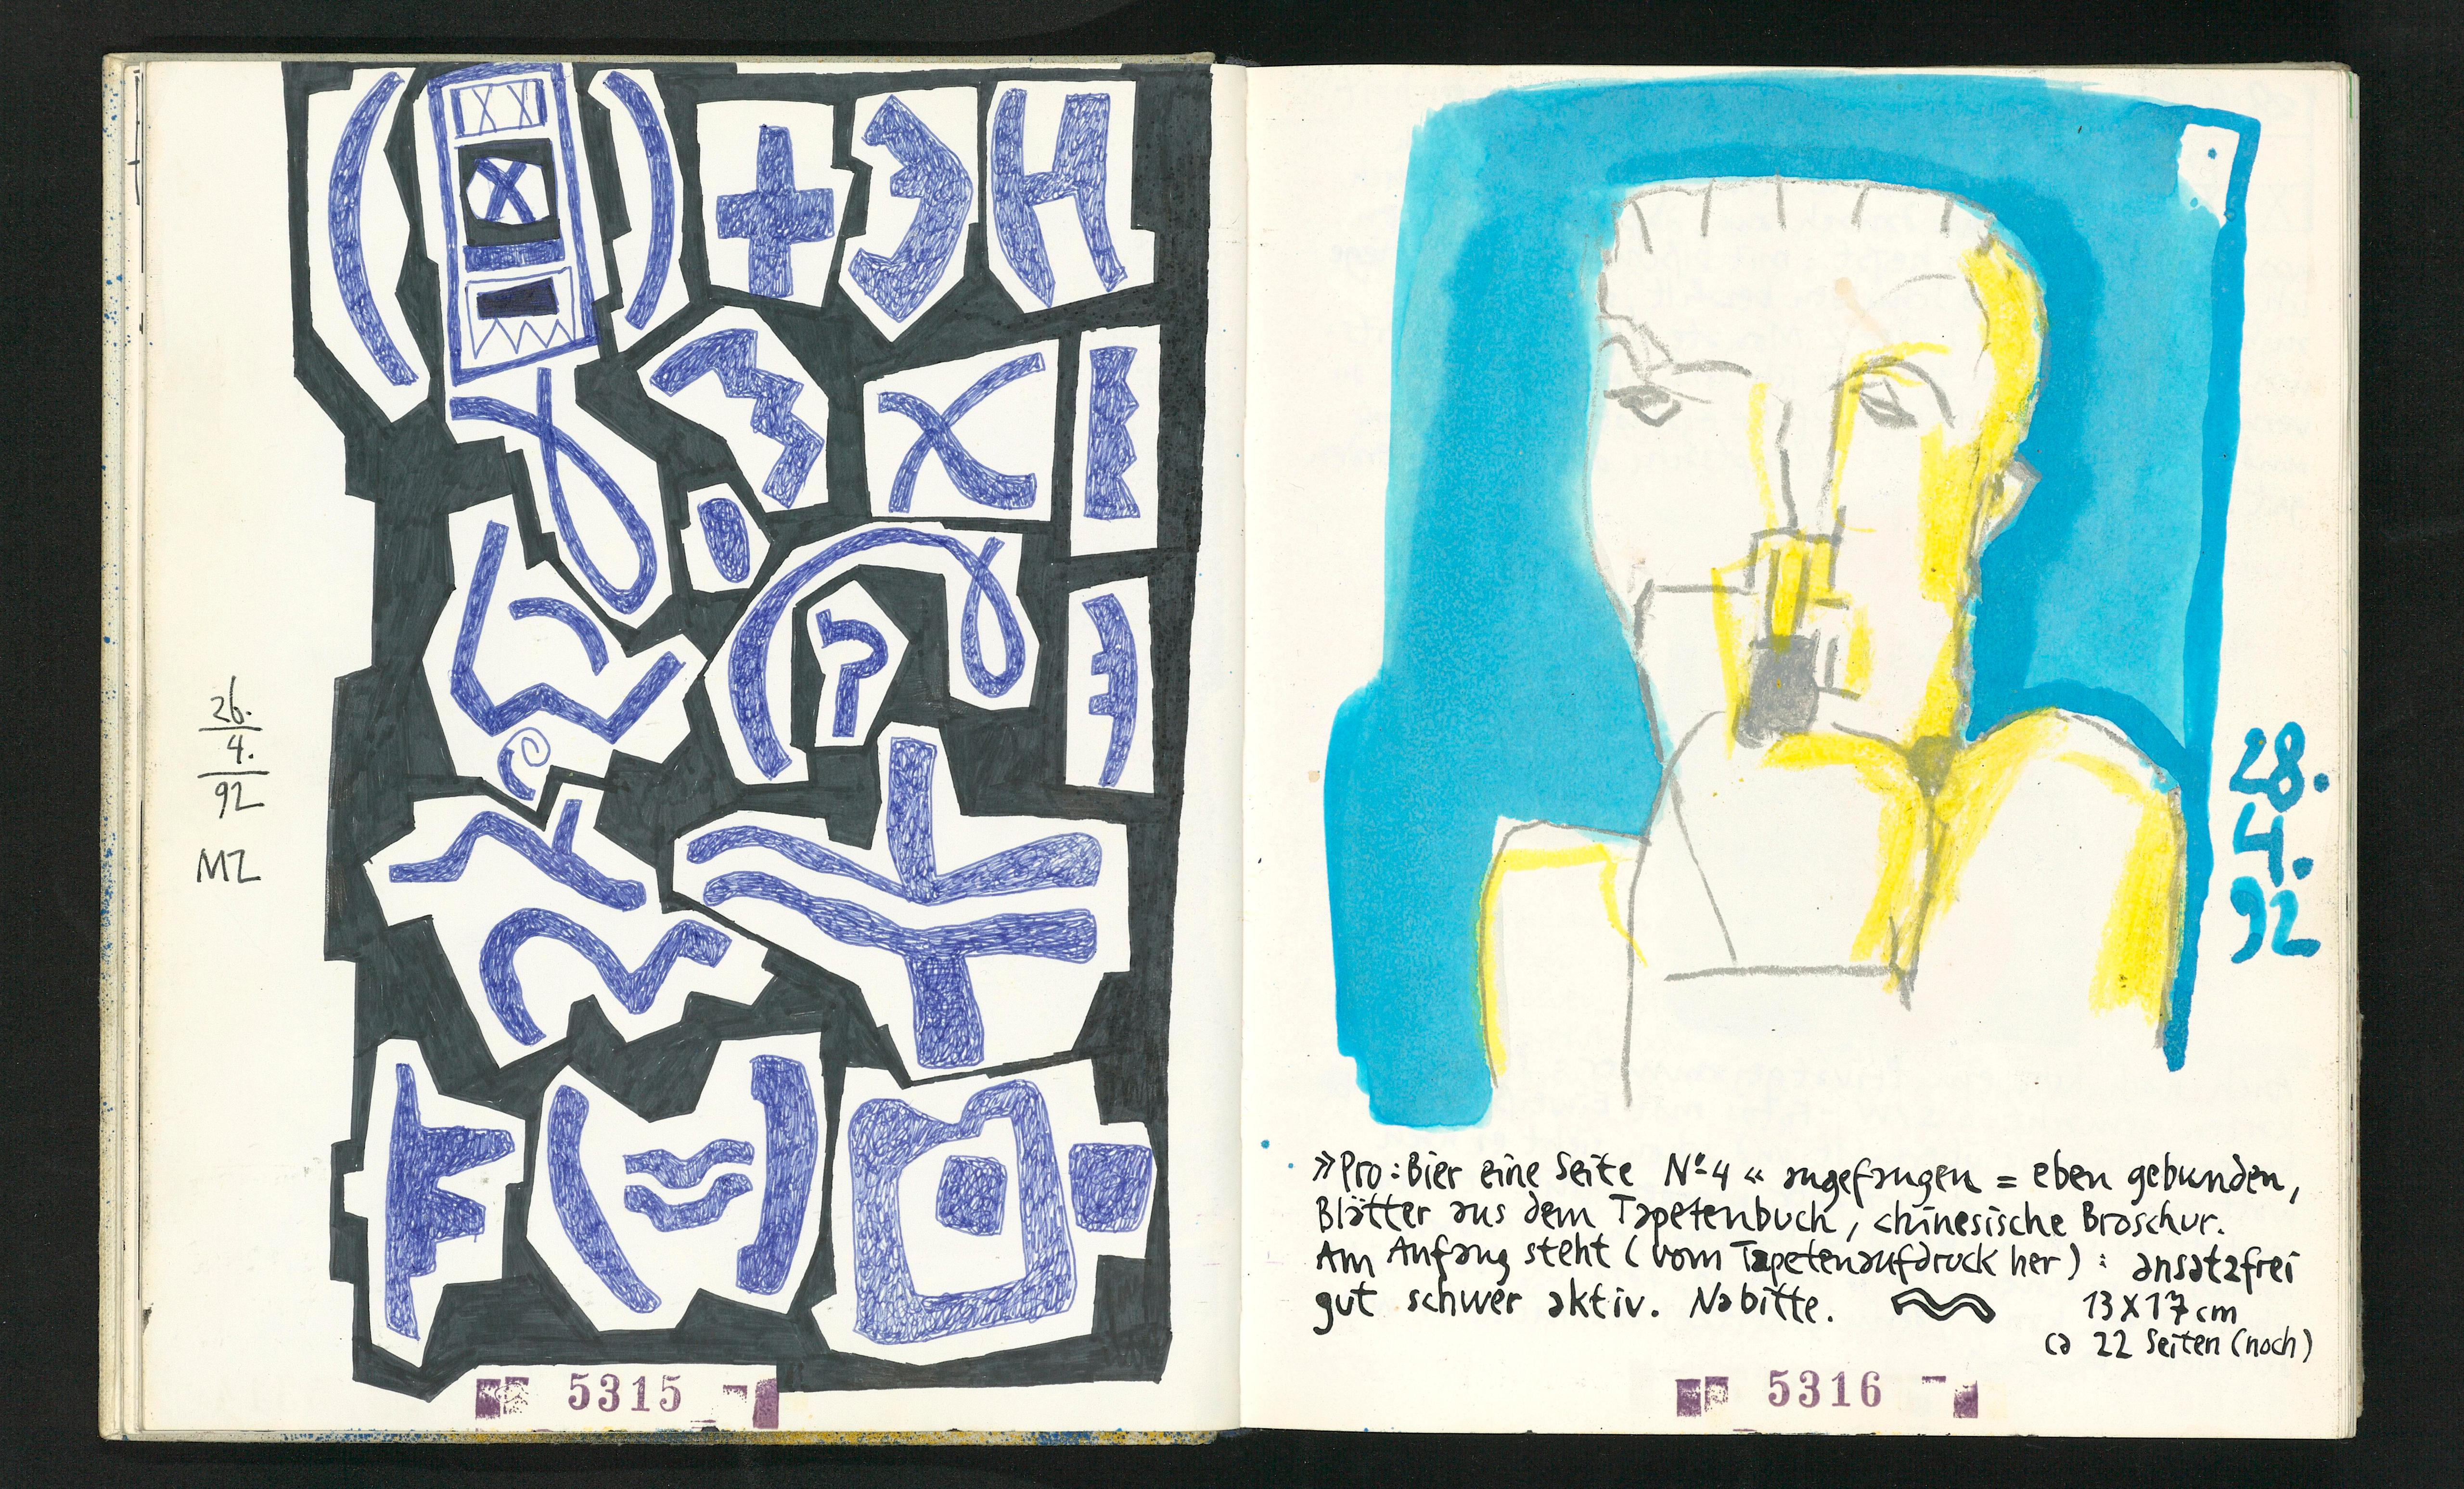 26.
4.
92
MZ
5315
28.
4.
92
»Pro: Bier eine Seite Nº 4 « angefangen = eben gebunden,
Blätter aus dem Tapetenbuch, chinesische Broschur.
Am Anfang steht (vom Tapetenaufdruck her) : ansatzfrei
gut schwer aktiv. Nabitte.
13 x 17 cm
ca 22 Seiten (noch)
5316